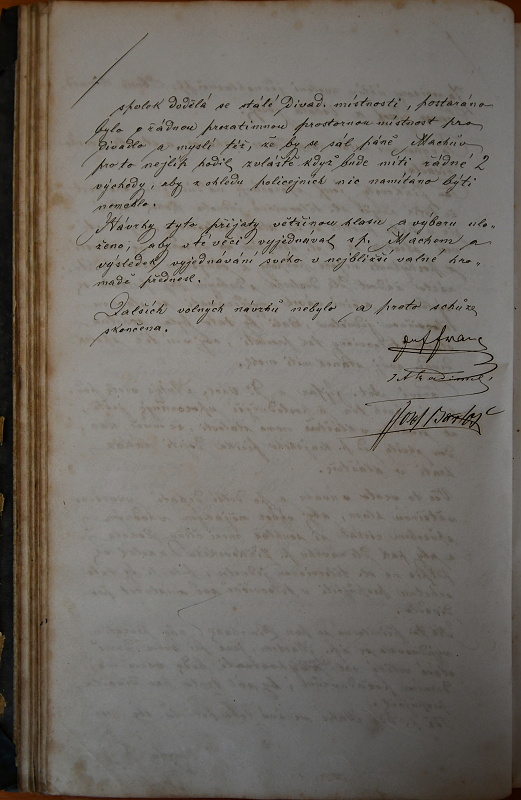 spolek dodělá se stálé Divad. místnosti, postaráno
bylo o řádnou prozatímnou prostornou místnost pro
divadlo a myslí též, že by se sál páně Machův
pro to nejlíp hodil zvláště když bude míti řádné 2
východy, aby z ohledu policejních nic namítáno býti
nemohlo.
Návrhy tyto přijaty většinou hlasů a výboru ulo-
ženo, aby v té věci vyjednával s p. Machem a
výsledek vyjednávání svého v nejbližší valné hro-
madě přednesl.
Dalších volných návrhů nebylo a proto schůze
skončena.
Josef Bartoš